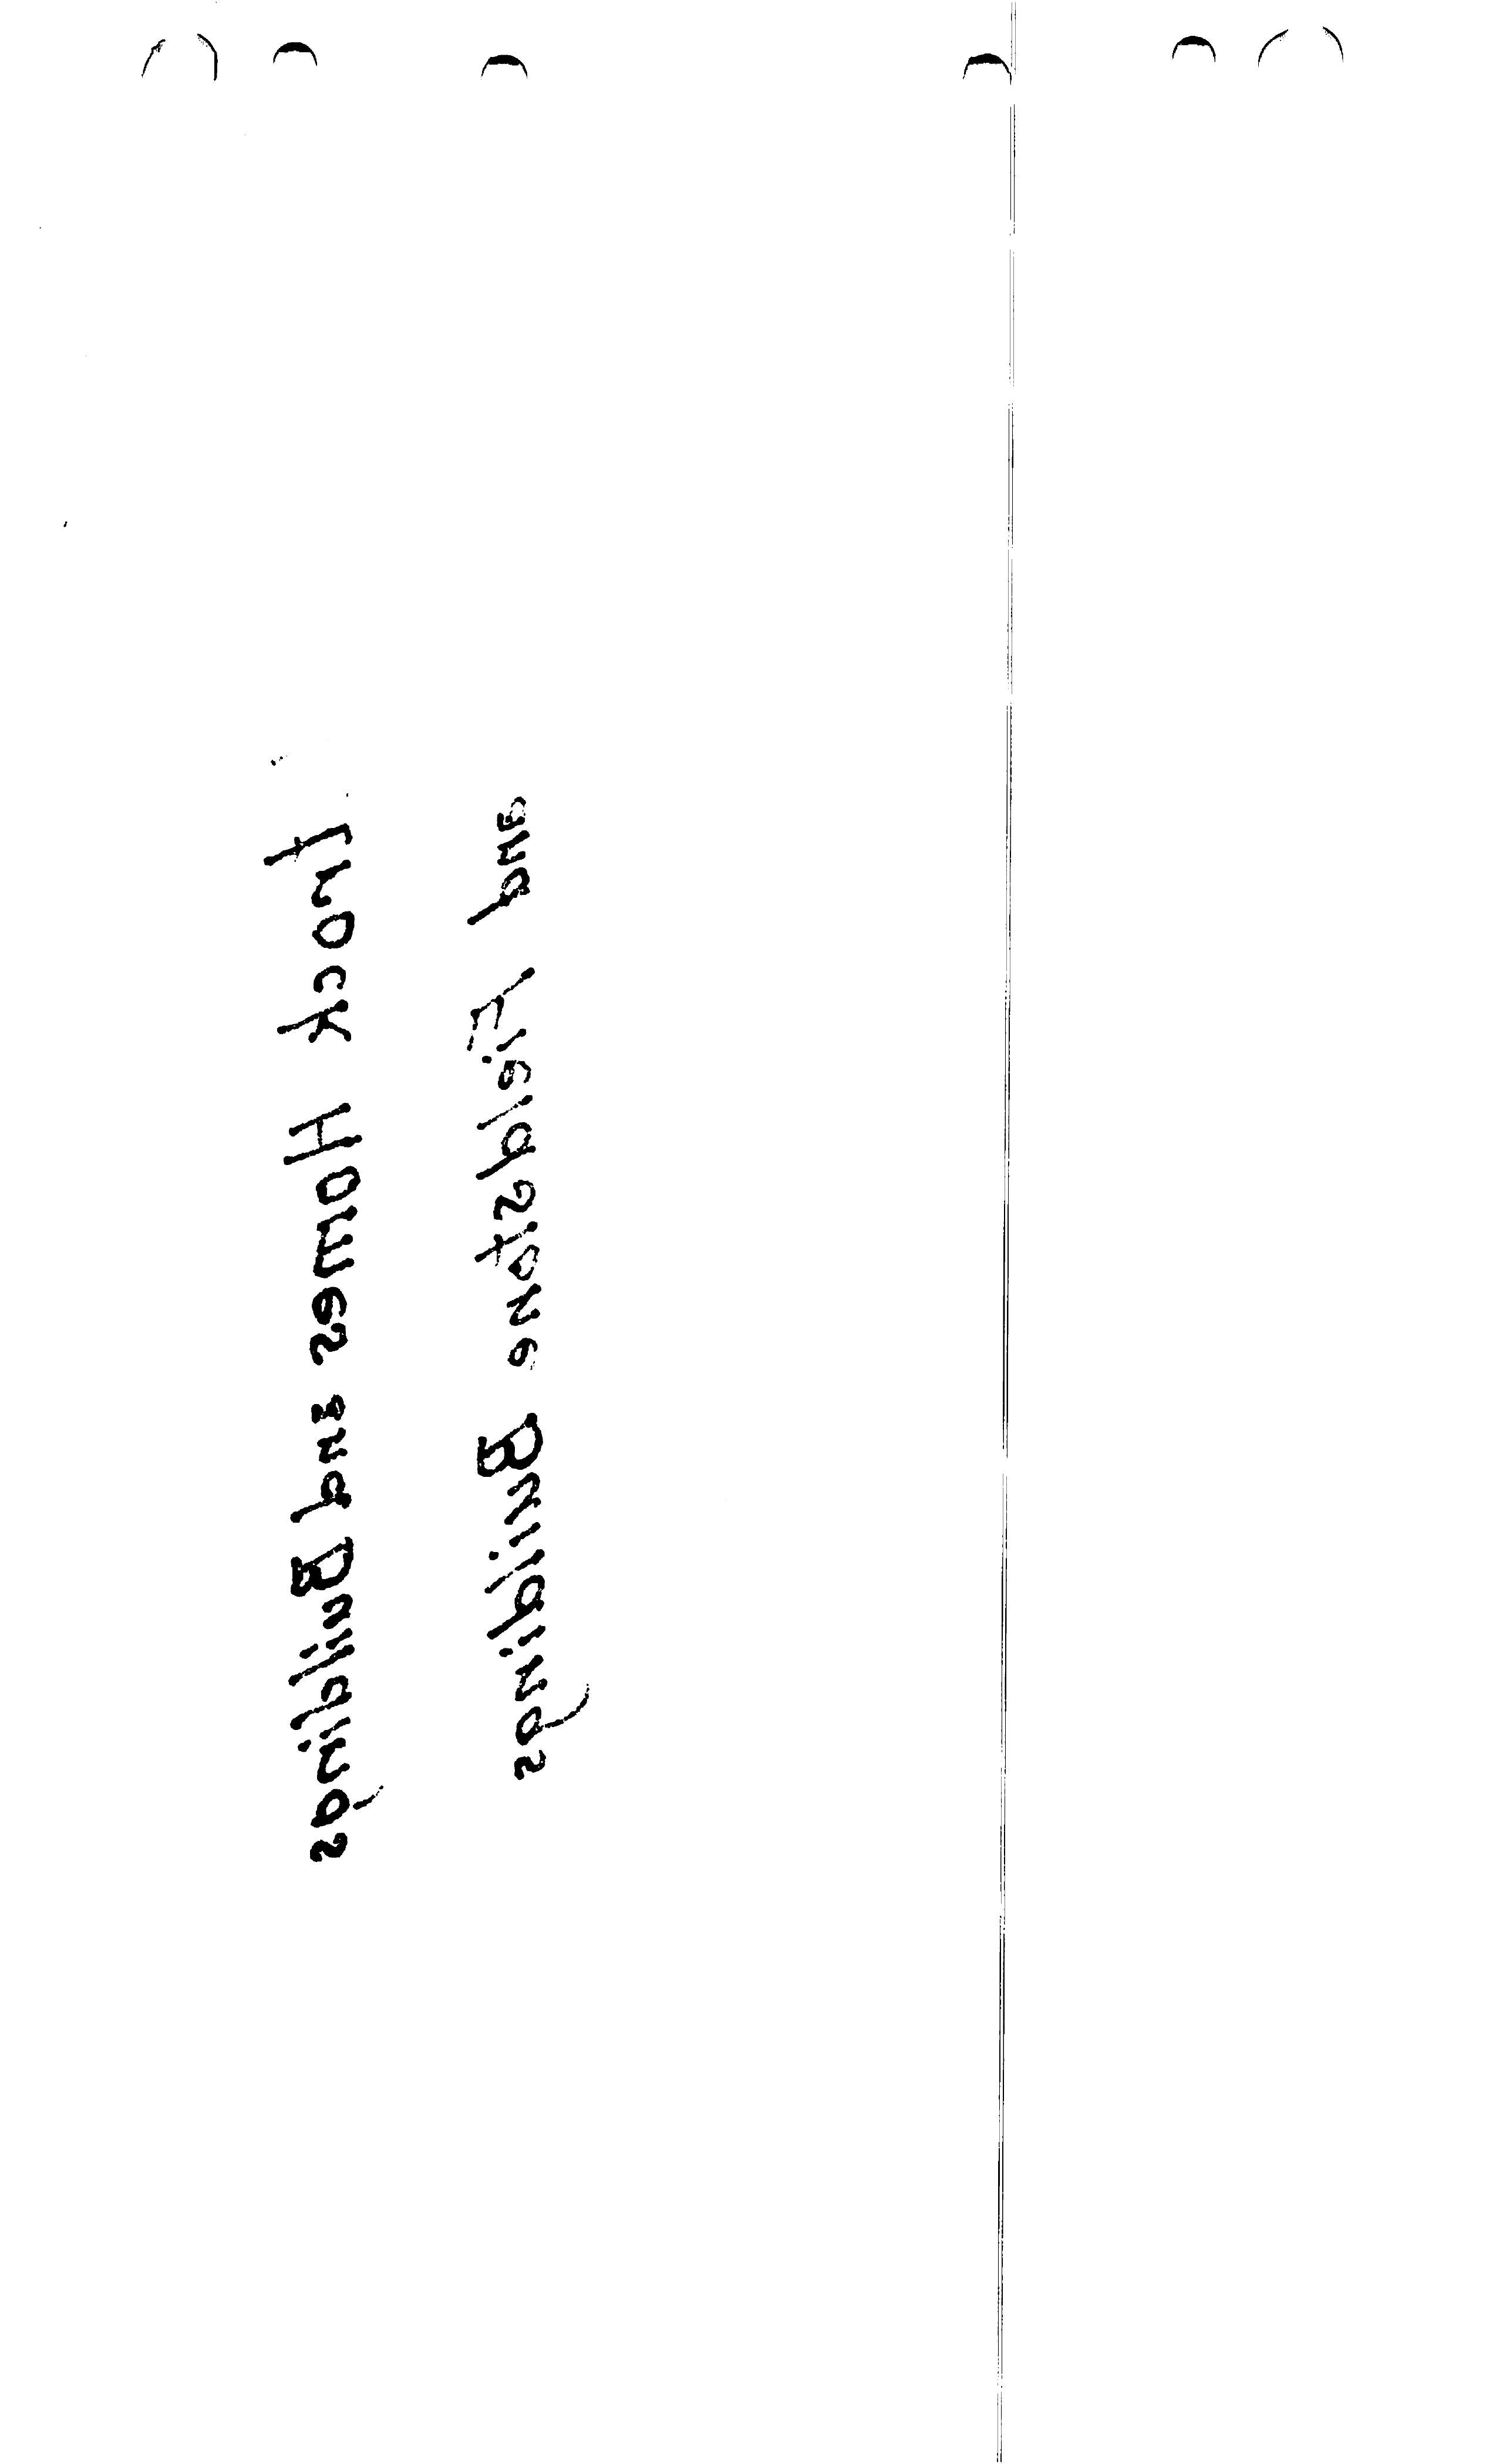 Homes and Buildings
and Fieldstone Buildings